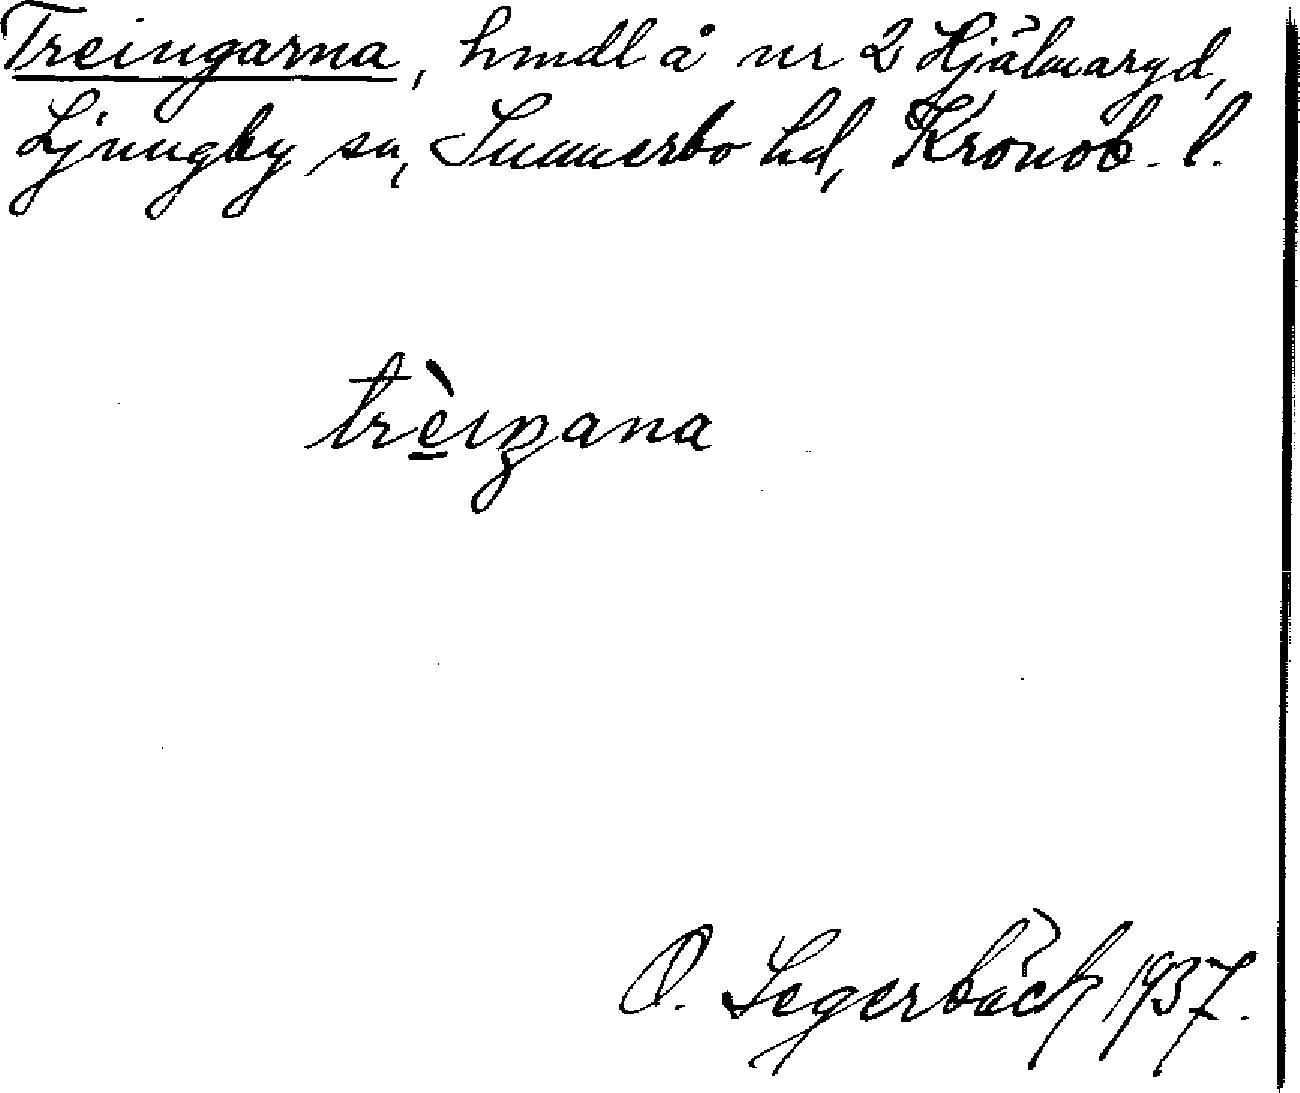 Treingarna, hmdl å nr 2 Hjälmaryd,
Ljungby sn, Sunnerbo hd, Kronob. l.
trèıŋana
O. Segerbäck 1937.